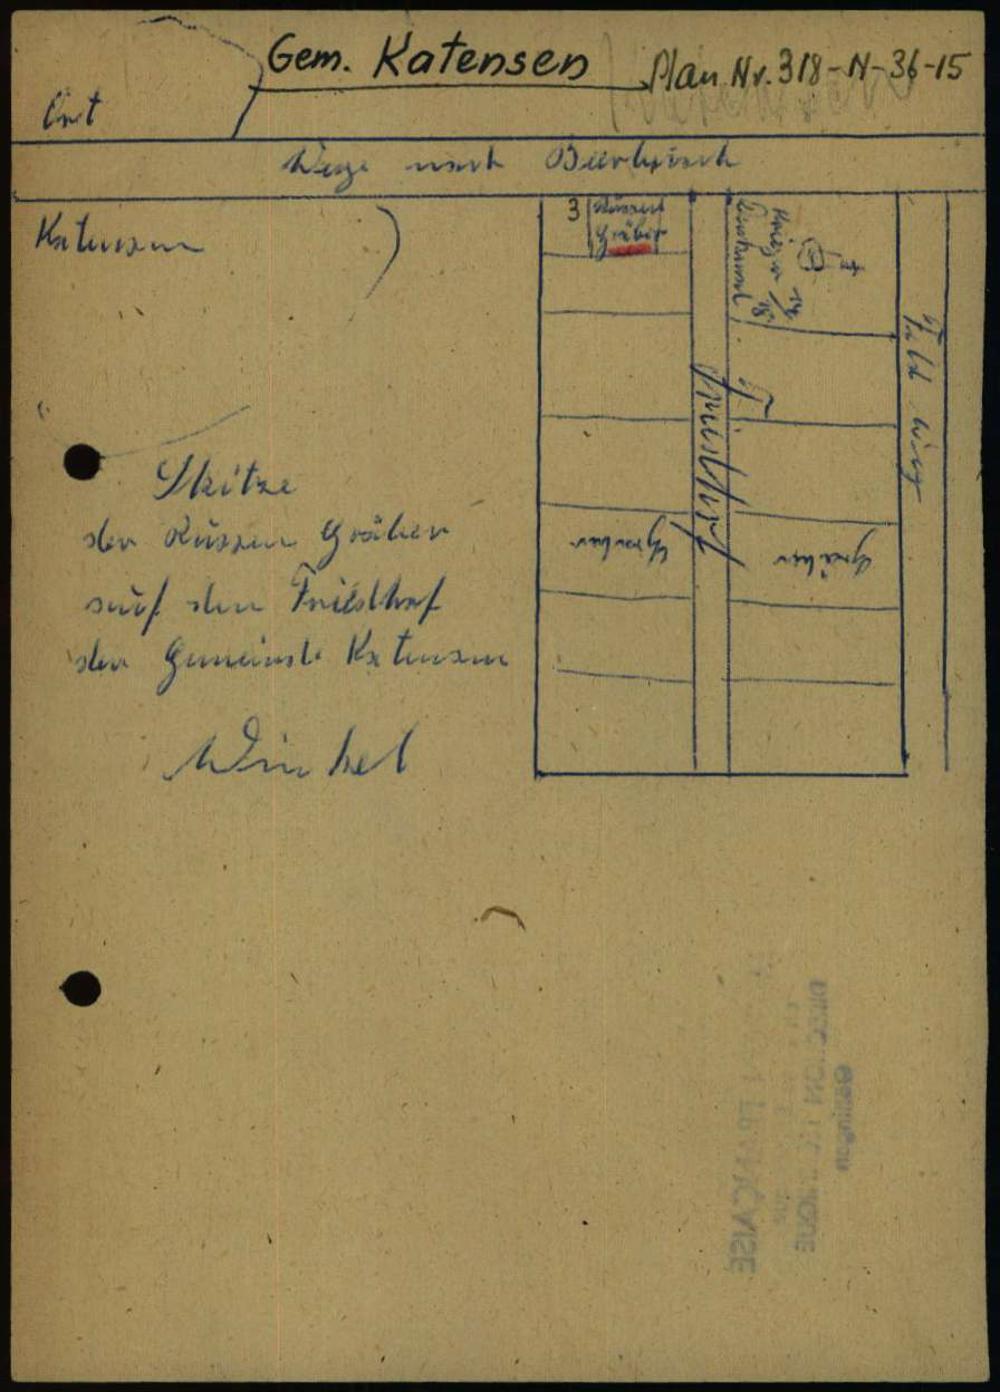 Gem. Katensen
Plan Nr. 318-N-36-15
Ort
Wege nach
Katensen
3 Russen
Gräber
Krieger
Denkmal
14/18
Feld weg
Friedhof
Gräber
Gräber
Skitze
der Russen Gräber
auf den Friedhof
der Gemeinde Katensen
Winkel
DIRECTION
FRANÇAISE